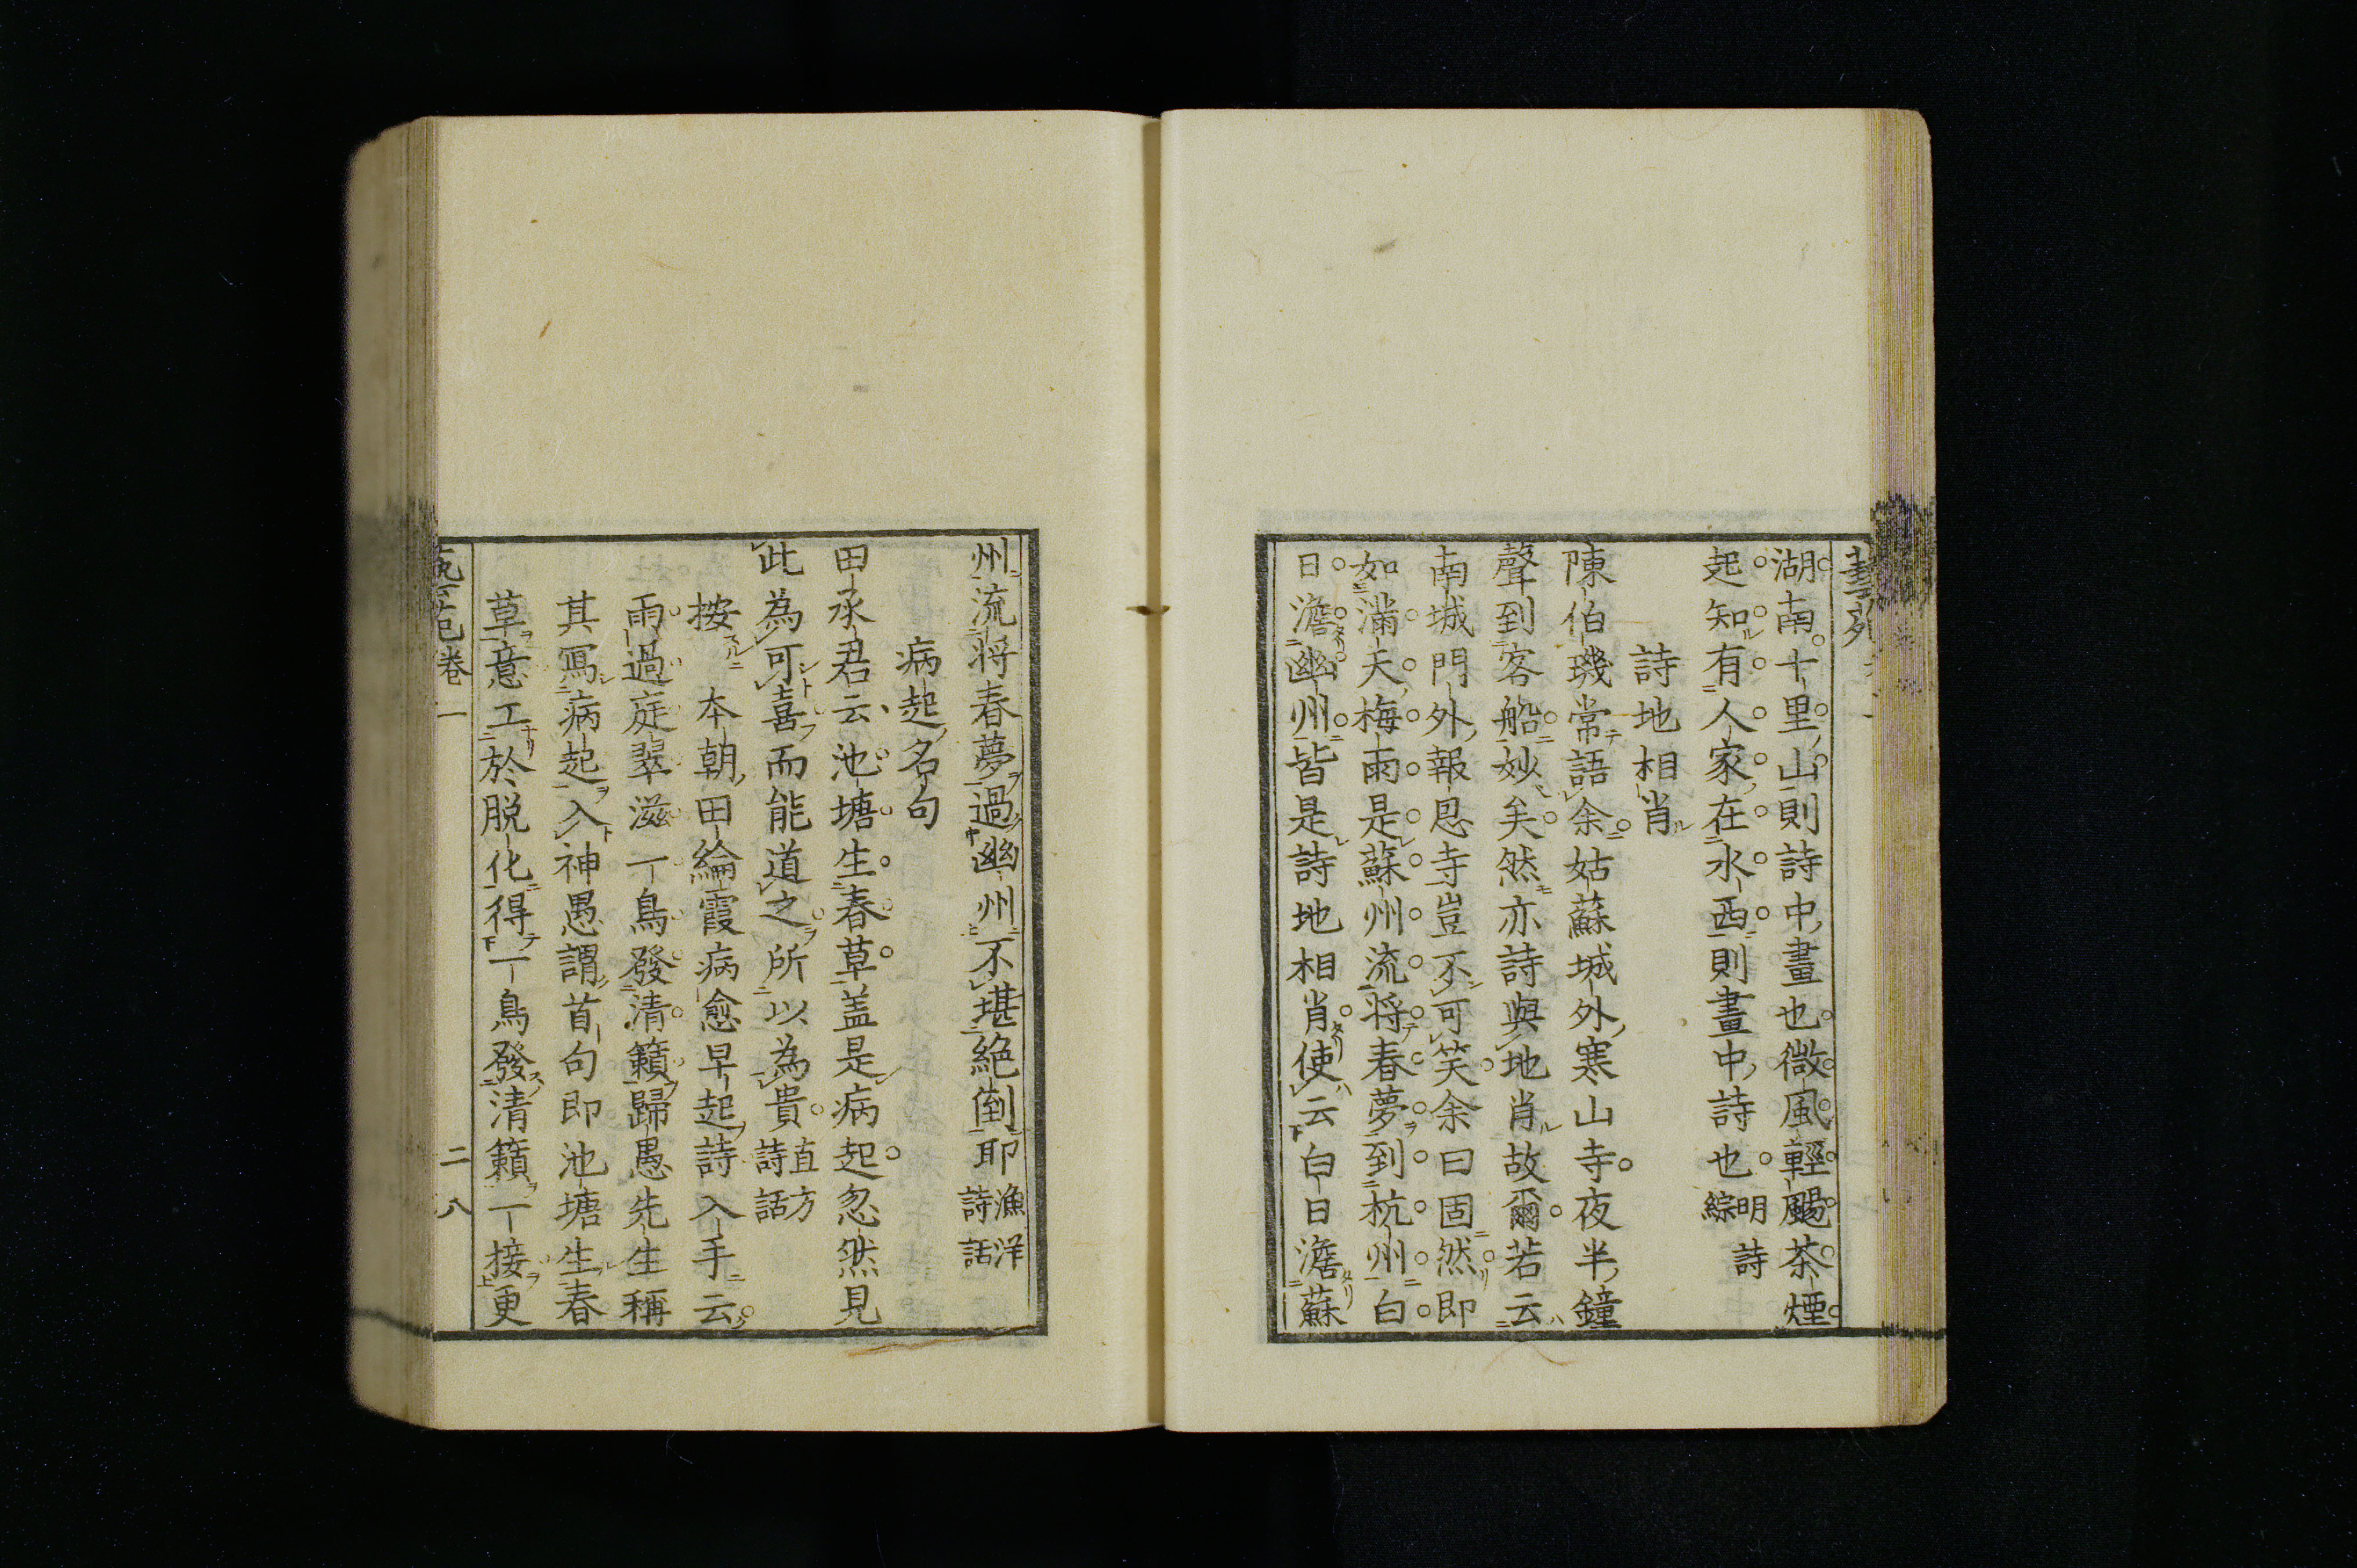 湖南十里山則詩中畫也微風輕颺茶煙
起知有人家在水西則畫中詩也明詩綜
詩地相肖
陳伯璣常語余姑蘇城外寒山寺夜半鐘
聲到客船妙矣然亦詩與地肖故爾若云
南城門外報恩寺豈不可笑余曰固然即
如滿天梅雨是蘇州流將春夢到杭州白
日澹幽州皆是詩地相肖使云白日澹蘇
州流将春夢過幽州不堪絶倒耶漁洋詩話
病起名句
田承君云池塘生春草盖是病起忽然見
此為可喜而能道之所以為貴直方詩話
按本朝田綸霞病愈早起詩入手云
雨過庭翠滋一鳥發清籟歸愚先生稱
其寫病起入神愚謂首句即池塘生春
草意工於脱化得一鳥發清籟一接更
卷一
二八